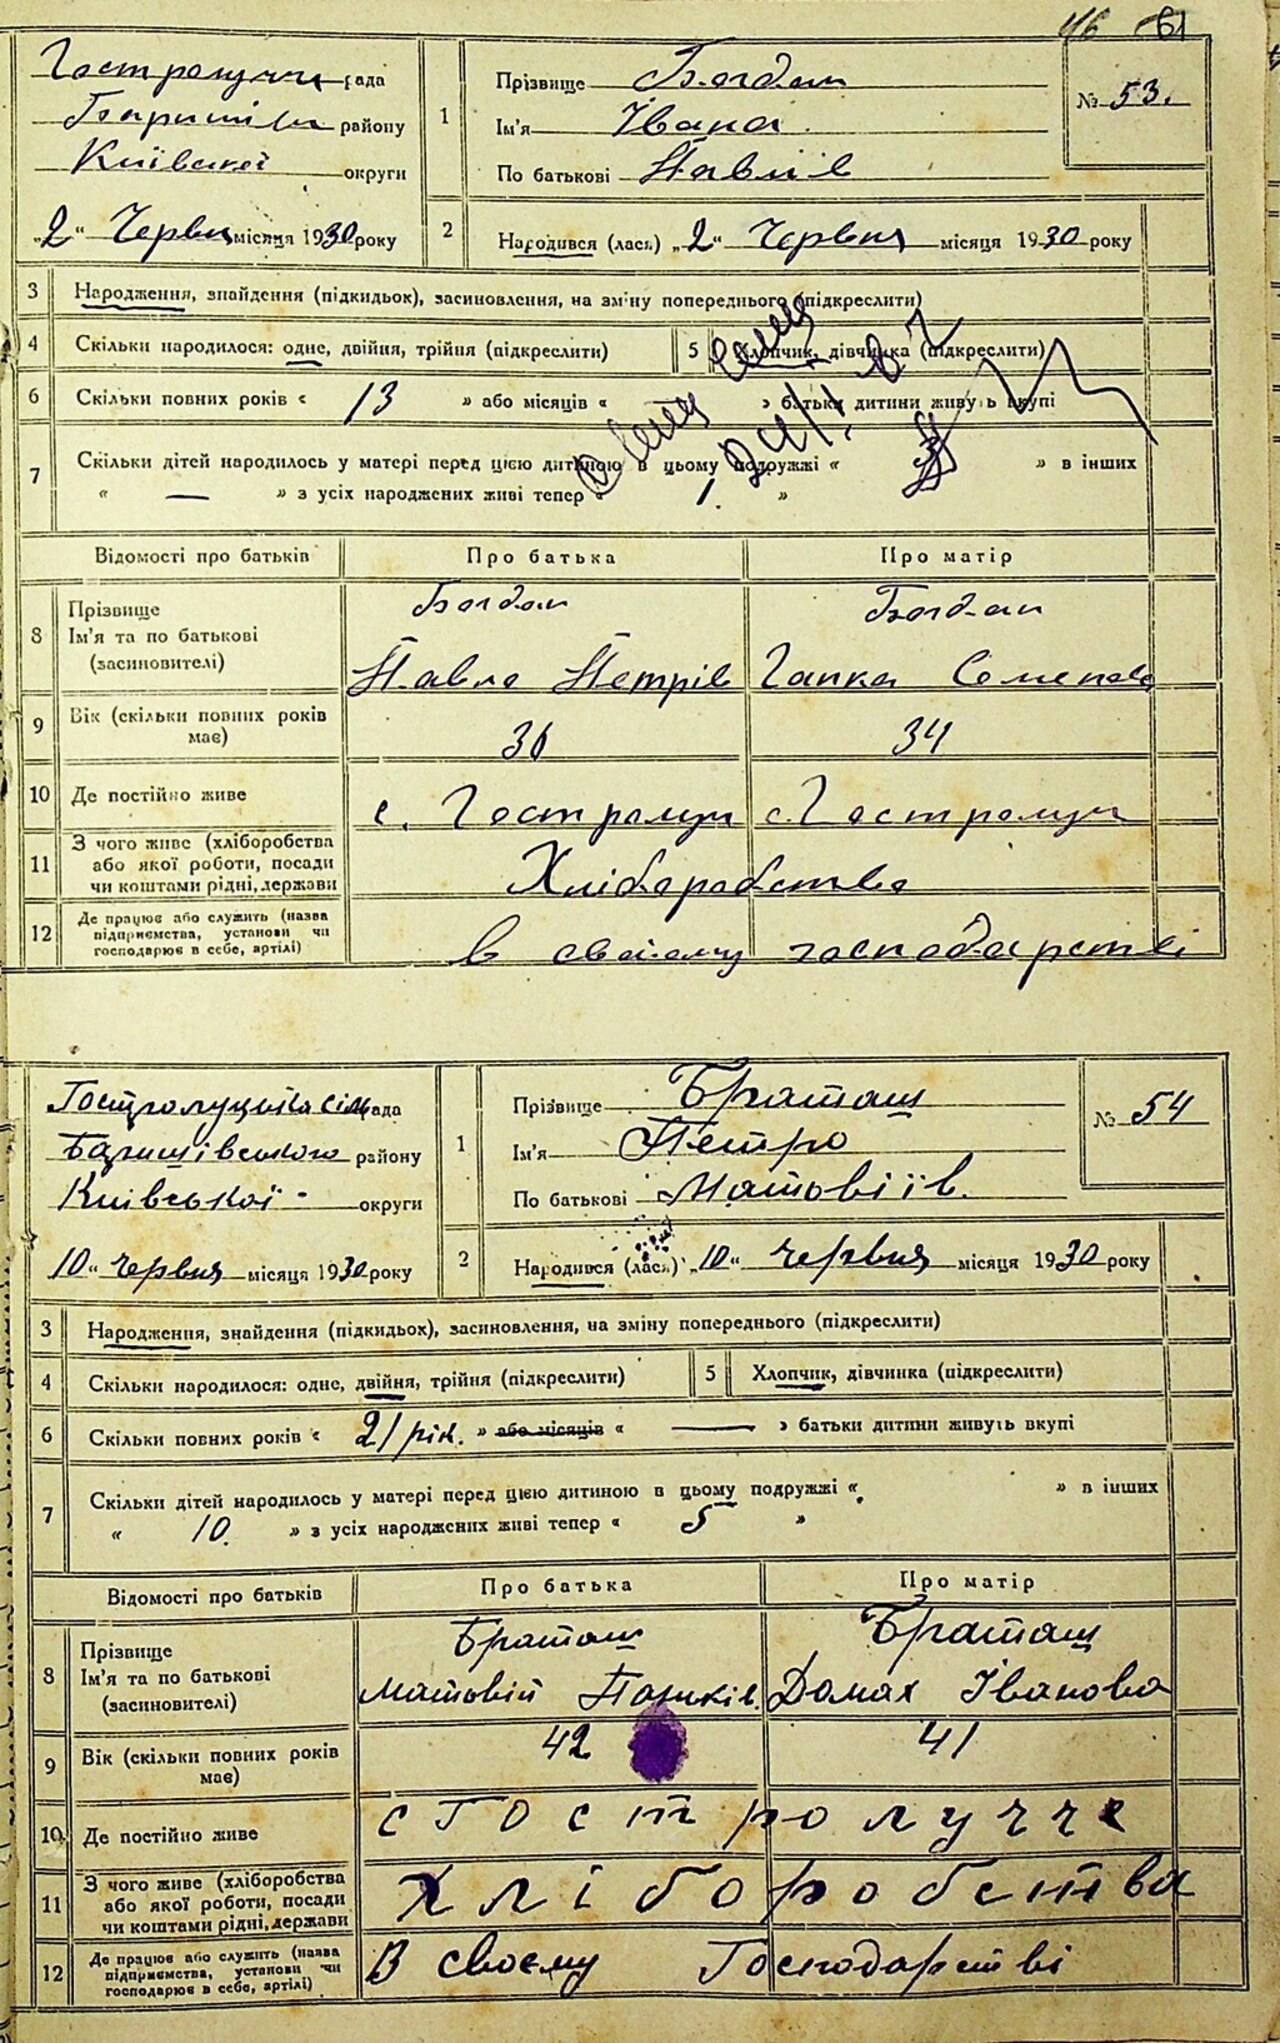 46 61
Гостролучча рада
Баришівськ району
Київської округи
„2“ Червня місяця 1930 року
1
Прізвище Богдан
Ім'я Івана
По батькові Павлів
№ 53.
2
Народився (лася) „2“ Червня місяця 1930 року
3 Народження, знайдення (підкидьок), засиновлення, на зміну попереднього (підкреслити)
4 Скільки народилося: одне, двійня, трійня (підкреслити) 5 Хлопчик, дівчинка (підкреслити)
6 Скільки повних років « 13 » або місяців « » батьки дитини живуть вкупі
7 Скільки дітей народилось у матері перед цією дитиною в цьому подружжі « 3 » в інших
« — » з усіх народжених живі тепер « 1. »
Відомості про батьків Про батька Про матір
8 Прізвище Богдан Богдан
Ім'я та по батькові
(засиновителі) Павло Петрів Гапка Семенова
9 Вік (скільки повних років
має) 36 34
10 Де постійно живе с. Гостролуч с. Гостролуч
11 З чого живе (хліборобства
або якої роботи, посади
чи коштами рідні, держави Хліборобство
12 Де працює або служить (назва
підприємства, установи чи
господарює в себе, артілі) в своїому господарстві
Гостролуцька сільрада
Баришівського району
Київської округи
10“ червня місяця 1930 року
1
Прізвище Браташ
Ім'я Петро
По батькові Матовіїв.
№ 54
2
Народився (лася) „10“ червня місяця 1930 року
3 Народження, знайдення (підкидьок), засиновлення, на зміну попереднього (підкреслити)
4 Скільки народилося: одне, двійня, трійня (підкреслити) 5 Хлопчик, дівчинка (підкреслити)
6 Скільки повних років « 21 рік. » або місяців « — » батьки дитини живуть вкупі
7 Скільки дітей народилось у матері перед цією дитиною в цьому подружжі « » в інших
« 10. » з усіх народжених живі тепер « 5 »
Відомості про батьків Про батька Про матір
8 Прізвище Браташ Браташ
Ім'я та по батькові
(засиновителі) Матовій Домах Іванова
9 Вік (скільки повних років
має) 42 41
10 Де постійно живе с Гостролучче
11 З чого живе (хліборобства
або якої роботи, посади
чи коштами рідні, держави Хліборобства
12 Де працює або служить (назва
підприємства, установи чи
господарює в себе, артілі) В своєму Господарстві